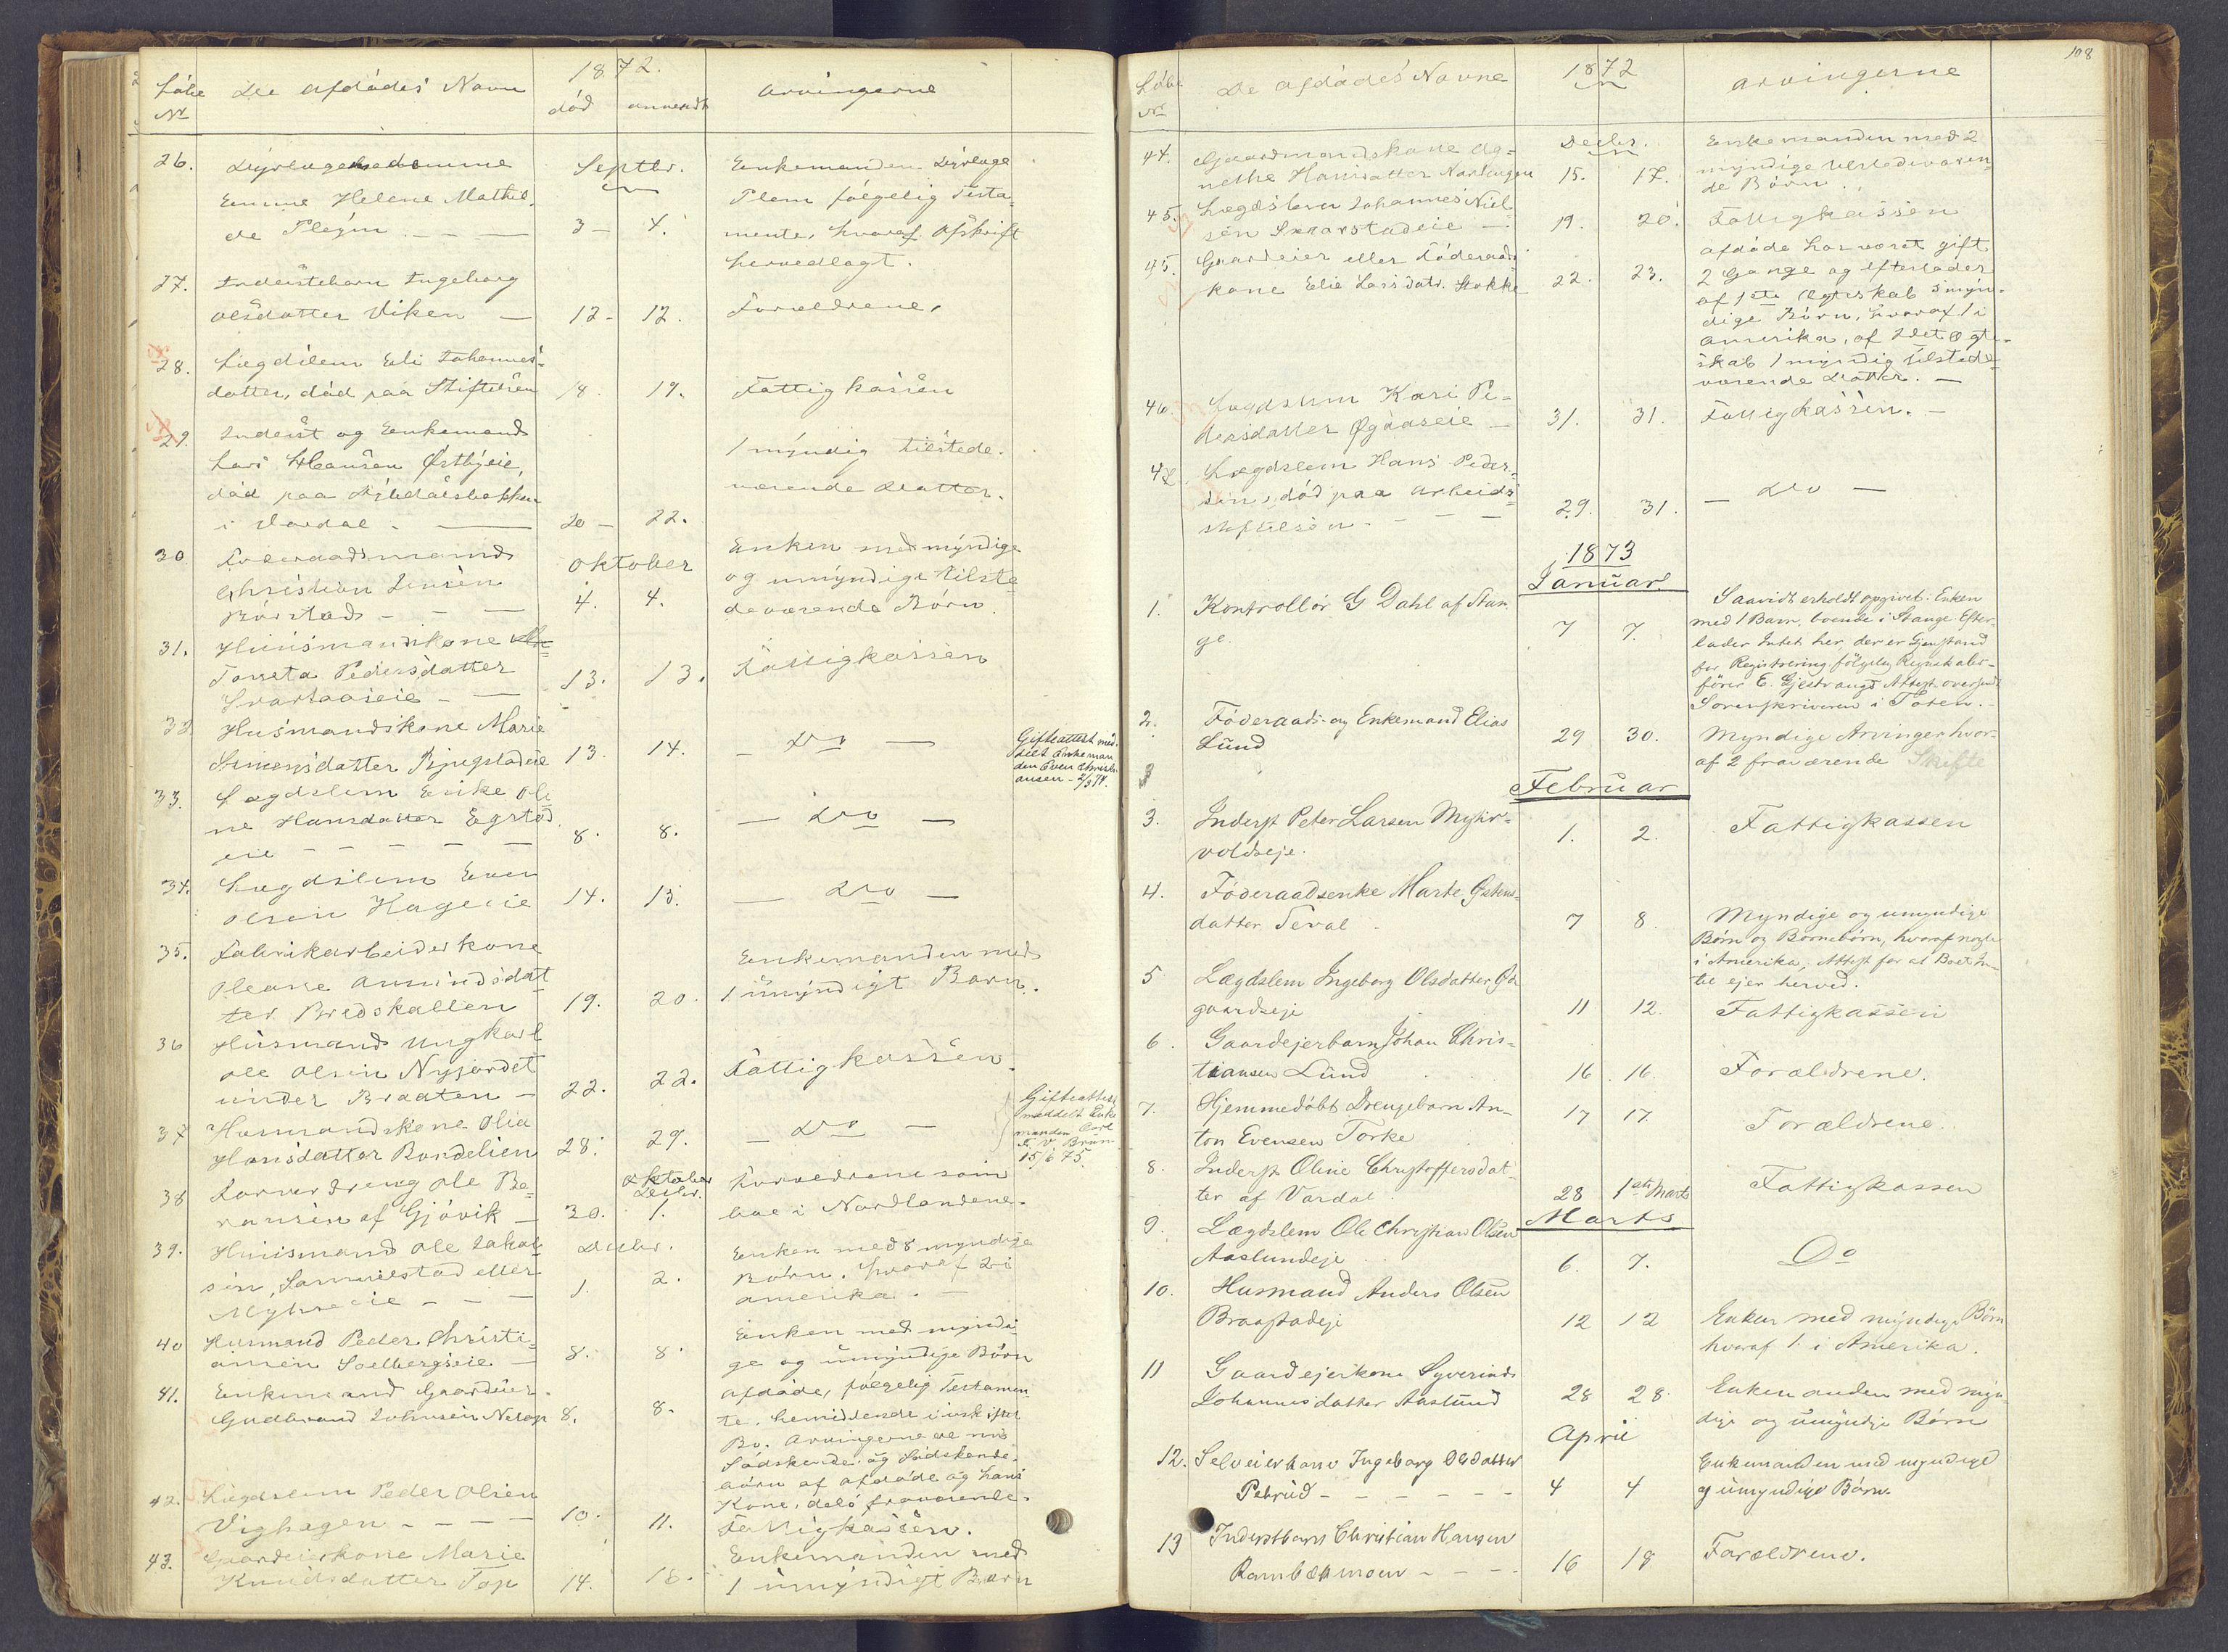 Løbe
No
De Afdødes Navn
1872.
død
anmeldt
Arvingerne
26.
Dyrlægemadamme
Emma Helene Mathil-
de Pleym
Septbr.
3 - 4.
Enkemanden Dyrlæge
Pleym følgelig Testa-
mente, hvoraf Afskrift
hervedlagt.
27.
Inderstebarn Ingeborg
Olsdatter Viken -
12 - 12.
Forældrene.
28.
Lægdslem Eli Johannes-
datter, død paa Stiftelsen
18. 19.
Fattigkassen
29.
Inderst og Enkemand
Lars Hansen Østbyeie,
død paa
i Vardal -
20 - 22.
1 myndig tilstede-
værende Datter.
30
Føderaadsmand
Christian Jensen
Børstad - - -
Oktober
4. 4.
Enken med myndige
og umyndige tilste-
deværende Børn.
31.
Huusmandskone
Torsta Pedersdatter
Svartaaseie -
13. 13.
Fattigkassen
32
Husmandskone Marie
Simensdatter Bjugstadeie
13. 14.
- Do -
Gifteattest med-
delt Enkeman
den Even Christi-
ansen - 2/3 74.
33.
Lægdslem Enke Oli
ne Hansdatter Egstad
eie - - - - -
8. 8.
- Do -
34.
Lægdslem Even
Olsen Hageeie
14. 15.
- Do -
35.
Fabrikarbeiderkone
Oleane Amundsdat
ter Bredskallen
19. 20.
Enkemanden med
1 umyndigt Barn.
36
Husmand Ungkarl
Ole Olsen Nyjordet
under Braaten -
22. 22.
Fattigkassen.
37
Husmandskone Olia
Hansdatter Bondelien
28. 29.
- Do -
Gifteattest
meddelt Enke
manden Carl
F. V. Bruun
15/6 75.
38
Ole Be-
ransen af Gjøvik -
Oktober
Decbr.
30. 1.
Forældrene som
boe i Nordlandene.
39.
Huusmand Ole Jakob
sen, Samuelstad eller
Myhreeie - - -
Decbr.
1. 2.
Enken med 8 myndige
Børn, hvoraf 2 i
Amerika. -
40
Husmand Peder Christi-
ansen Solbergseie -
8. 8.
Enken med myndi-
ge og umyndige Børn
41.
Enkemand Gaardeier
Gudbrand Johnsen
8. 8.
Afdøde, følgelig Testamen
te, hensiddende i uskiftet
Bo. Arvingerne ere
Sødskende og Sødskende-
børn af afdøde og hans
Kone, dels fraværende.
42.
Lægdslem Peder Olsen
Vighagen - - - -
10. 11.
Fattigkassen.
43.
Gaardeierkone Marie
Knudsdatter Top
14. 16.
Enkemanden med
1 umyndigt Barn
108
Løbe
No
De Afdødes Navne
1872
Arvingerne
44.
Gaardmandskone Ag-
nethe Hansdatter
Decbr.
15. 17.
Enkemanden med 2
myndige tilstedeværen-
de Børn.
45.
Lægdslem Johannes Niel
sen Skararstadeie -
19. 20.
Fattigkassen
45.
Gaardeier eller Føderaads
kone Elie Larsdatr. Stokke
22. 23.
afdøde har været gift
2 Gange og efterlader
af 1ste Ægteskab 3 myn-
dige Børn, hvoraf 1 i
Amerika, af 2det Ægte-
skab 1 myndig tilstede-
værende Datter. -
46.
Lægdslem Kari Pe-
dersdatter Øgaaseie -
31. 31.
Fattigkassen. -
47.
Lægdslem Hans Peder-
sen, død paa Arbeids-
stiftelsen - - -
29. 31.
- Do -
1873
Januar
1.
Kontrollør G Dahl af Stan-
ge.
7 7.
Saavidt erholdt opgivet: Enken
med 1 Barn, boende i Stange. Efter-
lader Intet her, der er Gjenstand
for Registrering følgelig Regnskabs-
fører E. Gjestvangs Attest oversendt
Sorenskriveren i Toten. -
2.
Føderaads- og Enkemand Elias
Lund
29 30.
Myndige Arvinger hvor-
af 2 fraværende Skifte
Februar
3.
Inderst Peter Larsen Myhr-
voldseje.
1. 2.
Fattigkassen
4.
Føderaadsenke Marte Østens-
datter Teval.
7 8.
Myndige og umyndige
Børn og Børnebørn, hvoraf nogle
i Amerika, Attest for at Boet In-
tet ejer herved.
5
Lægdslem Ingeborg Olsdatter
gaardseje
11 12.
Fattigkassen
6.
Gaardejerbarn Johan Chris-
tiansen Lund
16. 16.
Forældrene.
7.
Hjemmedøbt Drengebarn An-
ton Evensen Torke
17 17.
Forældrene.
8.
Inderst Oline Chrystoffersdat-
ter af Vardal.
28 1ste Marts
Fattigkassen
Marts
9.
Lægdslem Ole Christian Olsen
Aaslundeje.
6. 7.
Do
10.
Husmand Anders Olsen
Braastadeje
12 12
Enken med myndige Børn
hvoraf 1 i Amerika.
11
Gaardejerkone Syverine
Johannesdatter Aaslund
28 28.
Enkemanden med myn-
dige og umyndige Børn
April
12.
Selveierkone Ingeborg Olsdatter
Petrud - - - - - -
4 4
Enkemanden med myndige
og umyndige Børn.
13
Inderstbarn Christian Hansen
Rambækmoen - - - -
16 18
Forældrene.